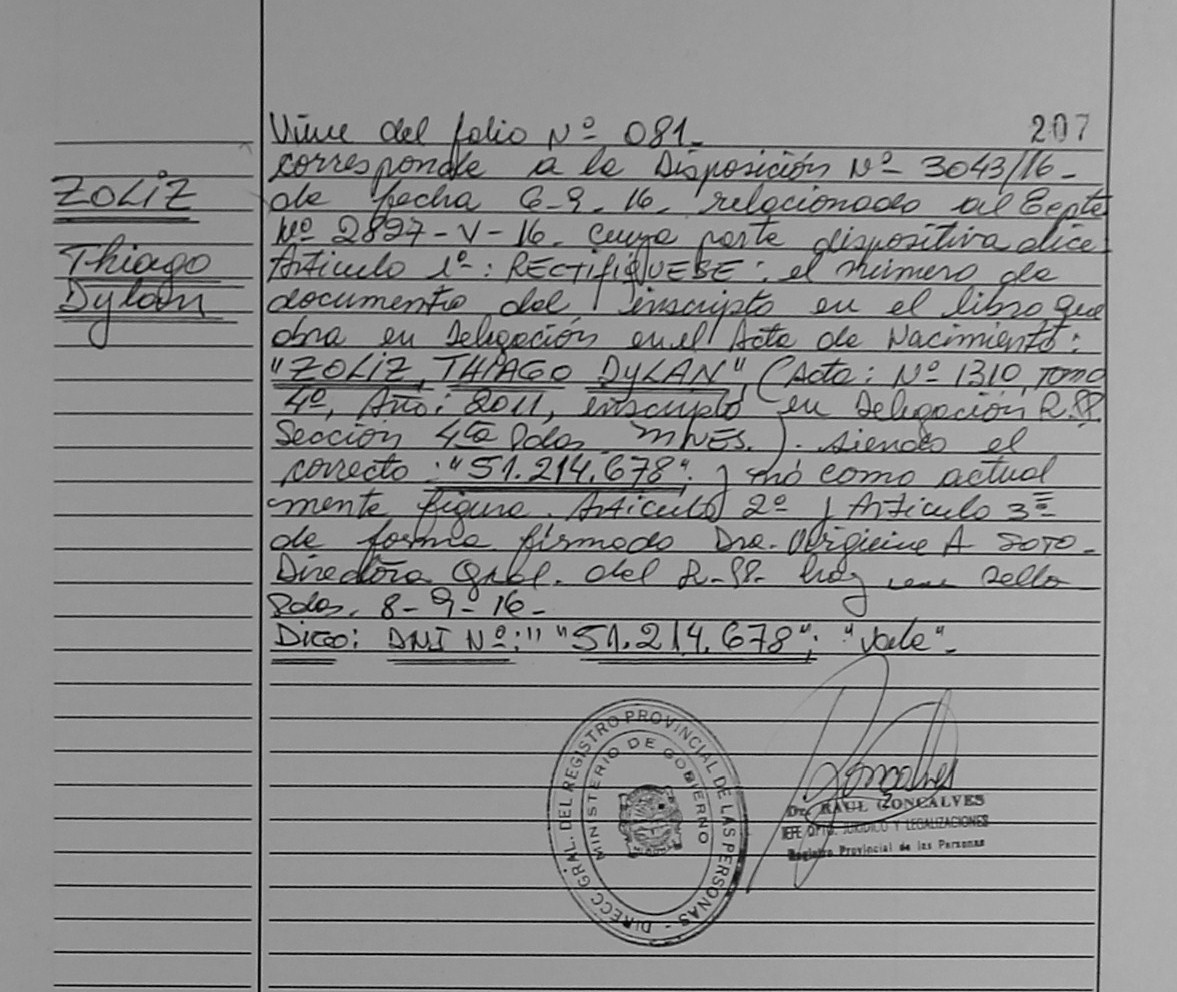 207
Viene del folio Nº 081.
corresponde a la Disposición Nº 3043/16-
ZOLIZ
de fecha 6-9-16. relacionado al Expte
Nº 2827-V-16. Cuya parte dispositiva dice
Thiago
Articulo 1º: RECTIFIQUESE: el número de
Dylan
documento del inscripto en el libro que
obra en Delegación en el Acta de Nacimiento:
"ZOLIZ, THIAGO DYLAN", (Acta: Nº 1310, Tomo
4º, Año: 2011, inscripto en Delegación R.PP.
Sección 4ta Pdas. MNES.). siendo el
correcto: "51.214.678". y no como actual
mente figura. Articulo 2º y Articulo 3º
de forma firmado Dra. A SOTO-
Directora Gral. del R.PP. hay un sello
Pdas. 8-9-16-
Digo: DNI Nº:" "51.214.678"; "Vale".
DIRECC. GRAL. DEL REGISTRO PROVINCIAL DE LAS PERSONAS -
MINISTERIO DE GOBIERNO
Goncalves
Dr. RAUL GONCALVES
JEFE DPTO. JURIDICO Y LEGALIZACIONES
Registro Provincial de las Personas